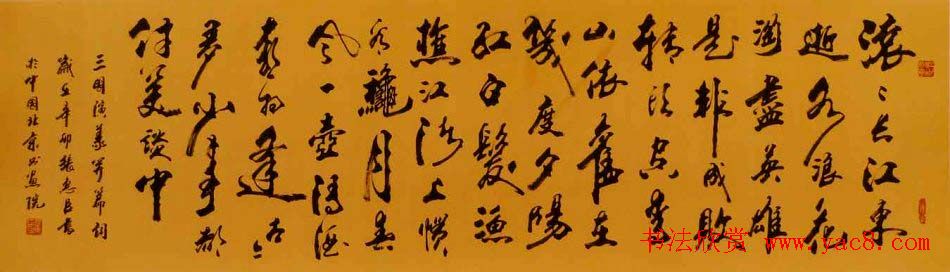 滚〻长江东
逝水浪花
淘尽英雄
是非成败
转头空青
山依旧在
几度夕阳
红白发渔
樵江渚上惯
看秋月春
风一壶浊酒
喜相逢古今
多少事都
付笑谈中
三国演义开篇词
岁在辛卯张惠臣书
于中国北京书画院
书法欣赏 www.yac8.com